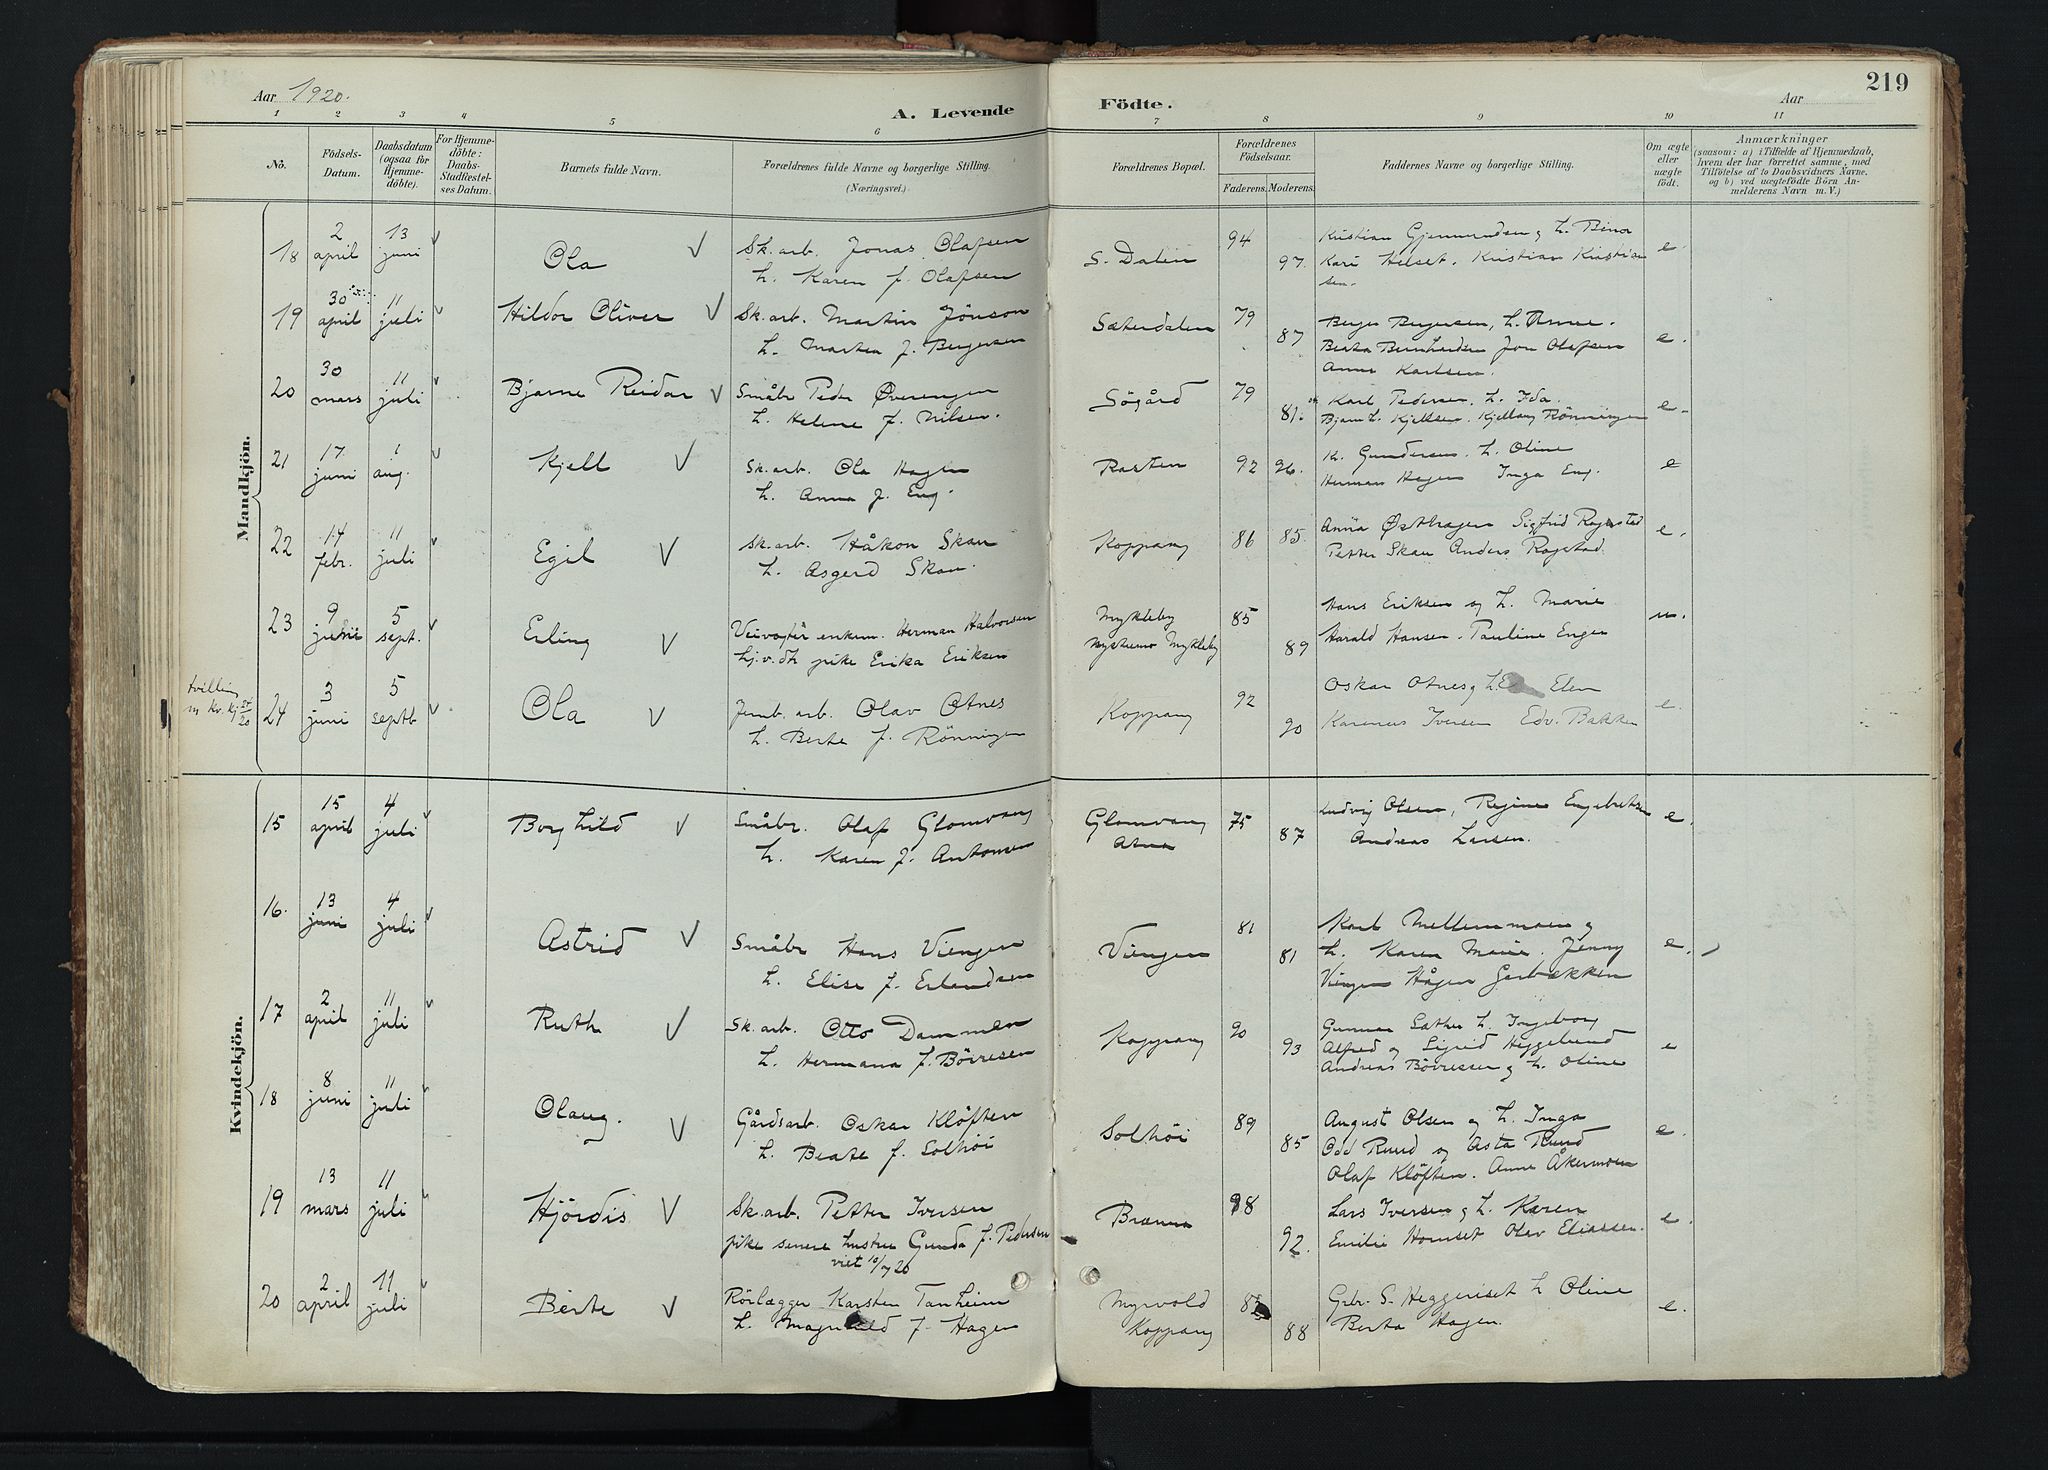 Aar 1920.
A. Levende
Födte.
Aar
219
1 2 3 4 5 6 7 8 9 10 11
No.
Födsels-Datum.
Daabsdatum (ogsaa for Hjemmedöbte).
For Hjemmedöbte: Daabs-Stadfæstelses Datum.
Barnets fulde Navn.
Forældrenes fulde Navne og borgerlige Stilling. (Næringsvei.)
Forældrenes Bopæl.
Forældrenes Födselsaar.
Faderens. Moderens.
Faddernes Navne og borgerlige Stilling.
Om ægte eller uægte födt.
Anmærkninger
(saasom: a) i Tilfælde af Hjemmedaab, hvem der har forrettet samme, med Tilföielse af to Daabsvidners Navne, og b) ved uægtefödte Börn Anmelderens Navn m. V.)
Mandkjön.
18 2 april 13 juni Ola
Sk. arb. Jonas Olafsen
h. Karen f. Olafsen
S. Dalen 94 97.
Kristian Gjermundsen og h.
Kari Helset. Kristian Kristiansen.
e.
19 30 april 11 juli Hildor Oliver
Sk. arb. Martin Jönson
h. Martea f. Bergersen
Sæterdalen 79 87
Berger Bergersen, h. Anne.
Berta Bernhardsen Jon Olafsen
Anne Karlsen.
e.
20 30 mars 11 juli Bjarne Reidar
Småbr Peder Øverengen
h. Helene f. Nilsen.
Søgård 79 81.
Karl Pedersen, h. Ida.
Kjellsen. Kjellaug Rönningen
e.
21 17 juni 1 aug. Kjell
Sk. arb. Ola Hagen
h. Anna f. Eng.
Rasten 92 96.
K. Gundersen. h. Oline
Herman Hagen Inga Eng.
e
22 14 febr. 11 juli Egil
sk. arb. Håkon Skau
h. Asgerd Skau.
Koppang 86 85.
Anna Østhagen Sigfrid Rogstad
Petter Skau Anders Rogstad.
e.
23 9 juni 5 sept. Erling
Veivogter enkem. Herman Halvorsen
hj.v.dtr pike Erika Eriksen
Mykleby
Nystumo Mykleby
85 89
Hans Eriksen og h. Marie
Harald Hansen. Pauline Engen
u.
tvilling
m Kv. kj
24 3 juni 5 septb Ola
Jernb. arb. Olav Otnes
h. Berte f. Rönningen
Koppang 92 90
Oskar Otnes og h. Elen
Karenus Iversen Edv. Bakken
e.
Kvindekjön.
15 15 april 4 juli Borghild
Småbr. Olaf Glomvang
h. Karen f. Antonsen
Glomvang
Atna
75 87
Ludvig Olsen, Regine Engebretsen
Andreas Larsen.
e.
16. 13 juni 4 juli Astrid
Småbr Hans Viengen
h. Elise f. Erlandsen
Viengen 81 81
Karl Mellemmoen og
h. Karen Marie. Jenny
Viengen Hågen Gersbakken
e.
17 2 april 11 juli Ruth
Sk. arb. Otto Dammen
h. Hermana f. Börresen
Koppang 90 93
Gunnar Sæther h. Ingeborg
Alfred og Sigrid Heggelund
Andreas Börresen og h. Oline
e
18 8 juni 11 juli Olaug.
Gårdsarb. Oskar Klöften
h. Beate f. Solhöi
Solhöi 89 85
August Olsen og h. Inga
Odd Ruud og Asta Ruud
Olaf Klöften. Anne Åkermoen
e.
19 13 mars 11 juli Hjördis
Sk. arb. Petter Iversen
pike senere hustru Gunda f. Pedersen
viet 10/7 20
Brænna 98 92.
Lars Iversen og h. Karen
Emilie Homset Olav Eliassen.
e.
20 2 april 11 juli Berte
Rörlægger Karsten Tanheim
h. Magnhild f. Hagen
Myrvold
Koppang
88
Grbr. S. Heggeriset h Oline
Berta Hagen.
e.